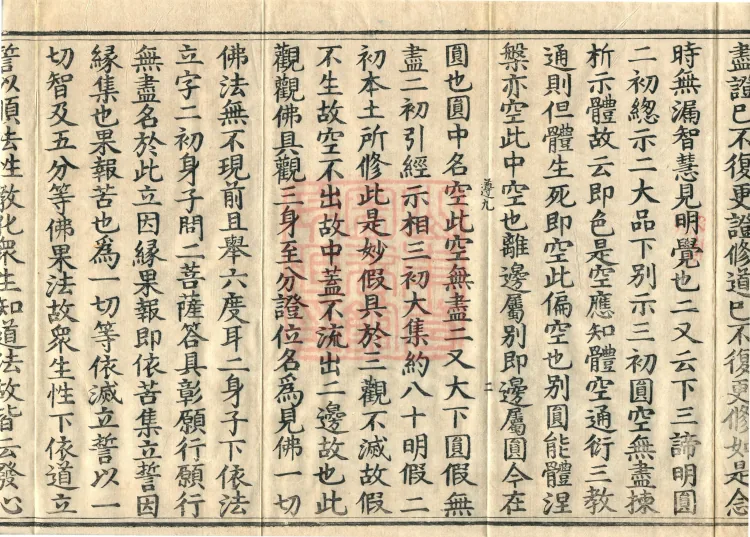 盡證已不復更證修道已不復更修如是念
時無漏智慧見明覺也二又云下三諦明圓
二初總示二大品下別示三初圓空無盡揀
析示體故云即色是空應知體空通衍三教
通則但體生死即空此偏空也別圓能體涅
槃亦空此中空也離邊屬別即邊屬圓今在
遵九
二
圓也圓中名空此空無盡二又大下圓假無
盡二初引經示相三初大集約八十明假二
初本土所修此是妙假具於三觀不滅故假
不生故空不出故中蓋不流出二邊故也此
觀觀佛具觀三身至分證位名為見佛一切
佛法無不現前且舉六度耳二身子下依法
立字二初身子問二菩薩答具彰願行願行
無盡名於此立因緣果報即依苦集立誓因
緣集也果報苦也為一切等依滅立誓以一
切智及五分等佛果法故眾生性下依道立
誓以順去性教化眾生知道法故皆云發心